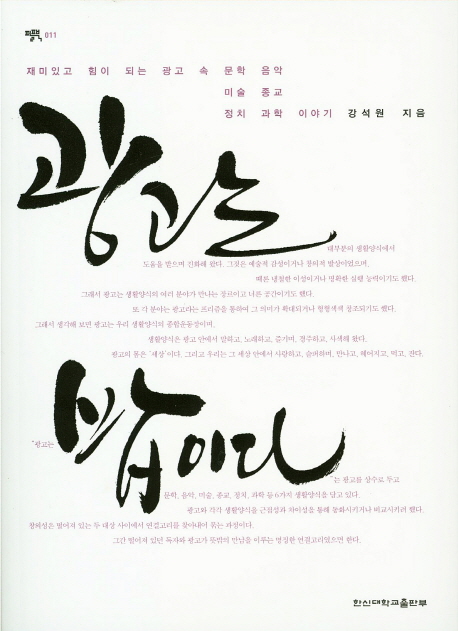 피플북 011
재미있고 힘이 되는 광고 속 문학 음악
미술 종교
정치 과학 이야기 강석원 지음
광고는
대부분의 생활양식에서
도움을 받으며 진화해 왔다. 그것은 예술적 감성이거나 창의적 발상이었으며,
때론 냉철한 이성이거나 명확한 실행 능력이기도 했다.
그래서 광고는 생활양식의 여러 분야가 만나는 장르이고 나른 공간이기도 했다.
또 각 분야는 광고라는 프리즘을 통하여 그 의미가 확대되거나 형형색색 창조되기도 했다.
그래서 생각해 보면 광고는 우리 생활양식의 종합운동장이며,
생활양식은 광고 안에서 말하고, 노래하고, 즐기며, 경주하고, 사색해 왔다.
광고의 몸은 '세상'이다. 그리고 우리는 그 세상 안에서 사랑하고, 슬퍼하며, 만나고, 헤어지고, 먹고, 잔다.
밥이다
"광고는
"는 광고를 상수로 두고
문학, 음악, 미술, 종교, 정치, 과학 등 6가지 생활양식을 담고 있다.
광고와 각각 생활양식을 근접성과 차이성을 통해 동화시키거나 비교시키려 했다.
창의성은 떨어져 있는 두 대상 사이에서 연결고리를 찾아내어 묶는 과정이다.
그간 떨어져 있던 독자와 광고가 뜻밖의 만남을 이루는 멍징한 연결고리였으면 한다.
한신대학교출판부